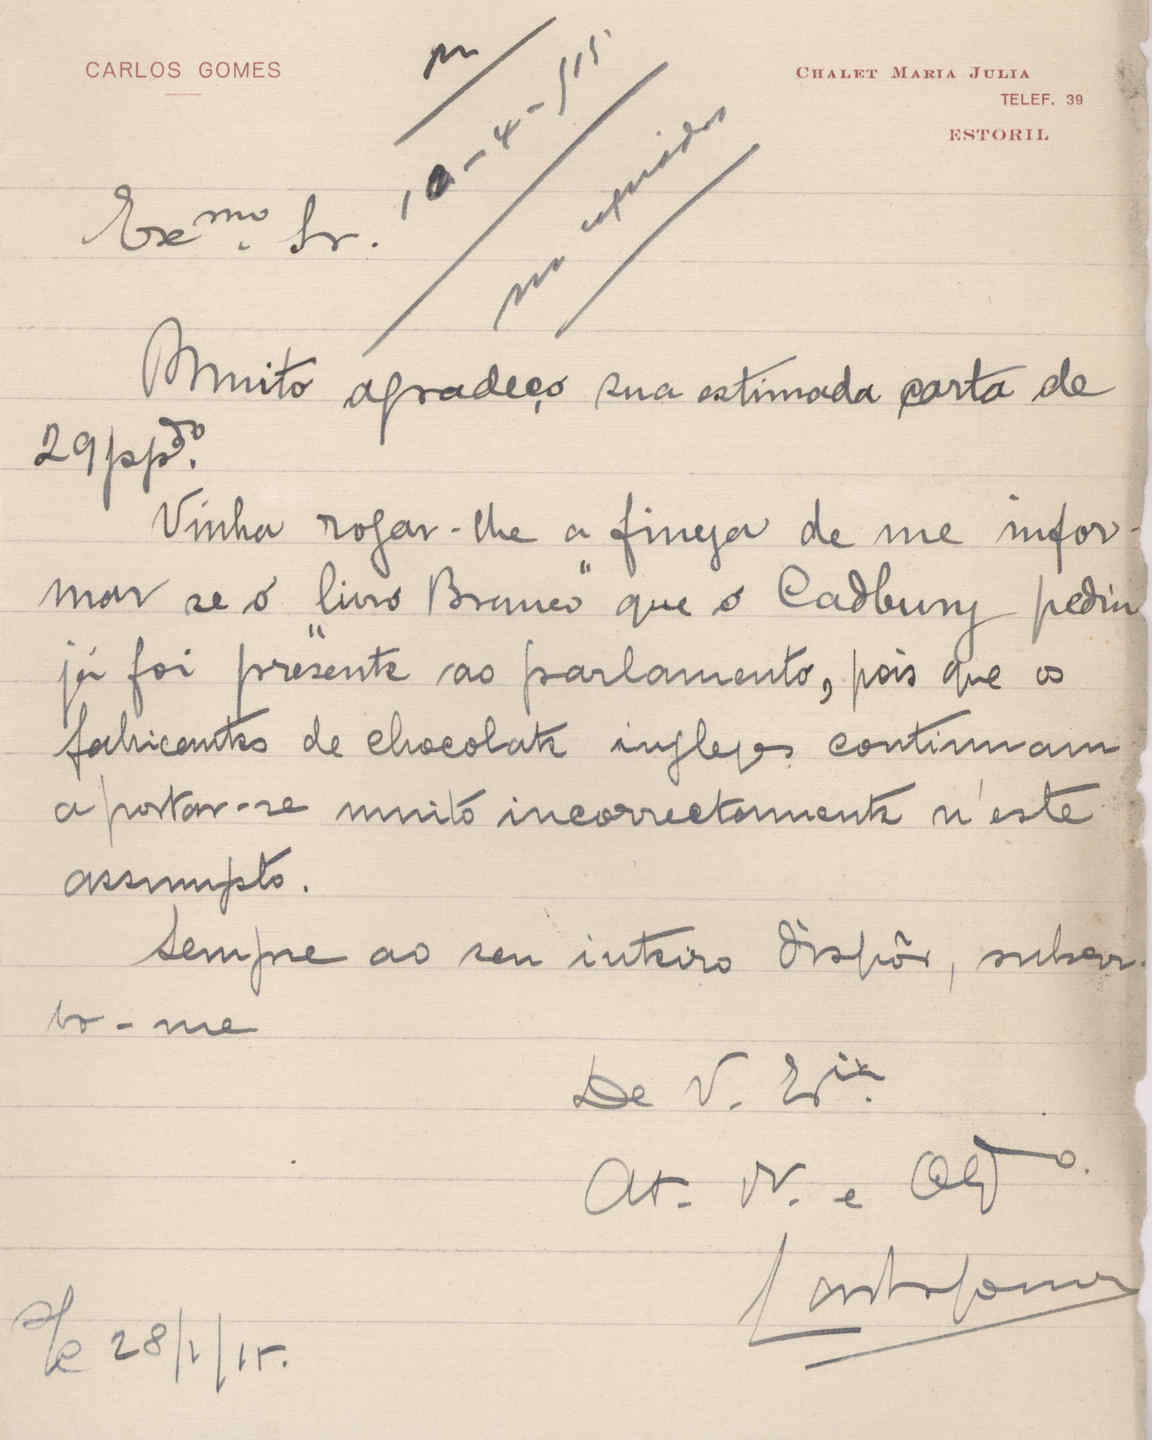 CARLOS GOMES
CHALET MARIA JULIA
TELEF. 39
ESTORIL
10-4-915
Exmo. Sr.
Muito agradeço sua estimada carta de
29 ppdo.
Vinha rogar-lhe a fineza de me infor-
mar se o "livro Branco" que o Cadbury pediu
já foi presente ao parlamento, pois que os
fabricantes de chocolate inglezes continuam
a portar-se muito incorrectamente n'este
assumpto.
Sempre ao seu inteiro dispôr, subscre-
vo-me
De V. Excia.
At. V. e Obgdo.
S/c 28/1/15.